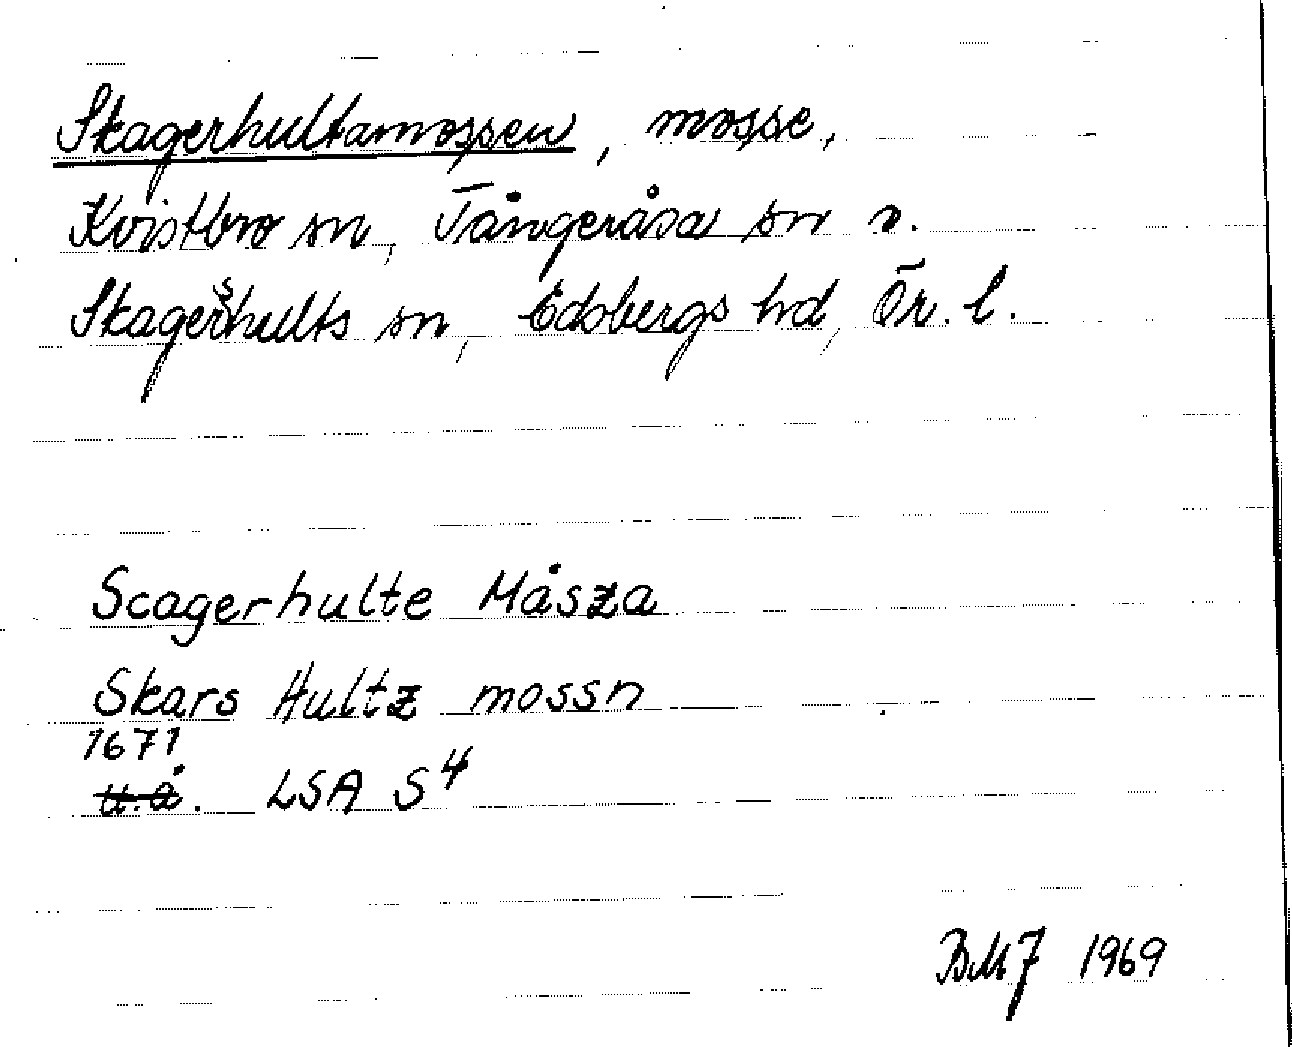 Skagerhultamossen, mosse,
Kvistbro sn, Tångeråsa sn o.
Skagershults sn, Edsbergs hd, Ör. l.
Scagerhulte Måsza
Skars Hultz mossn
1671
u.å. LSA S4
BMJ 1969